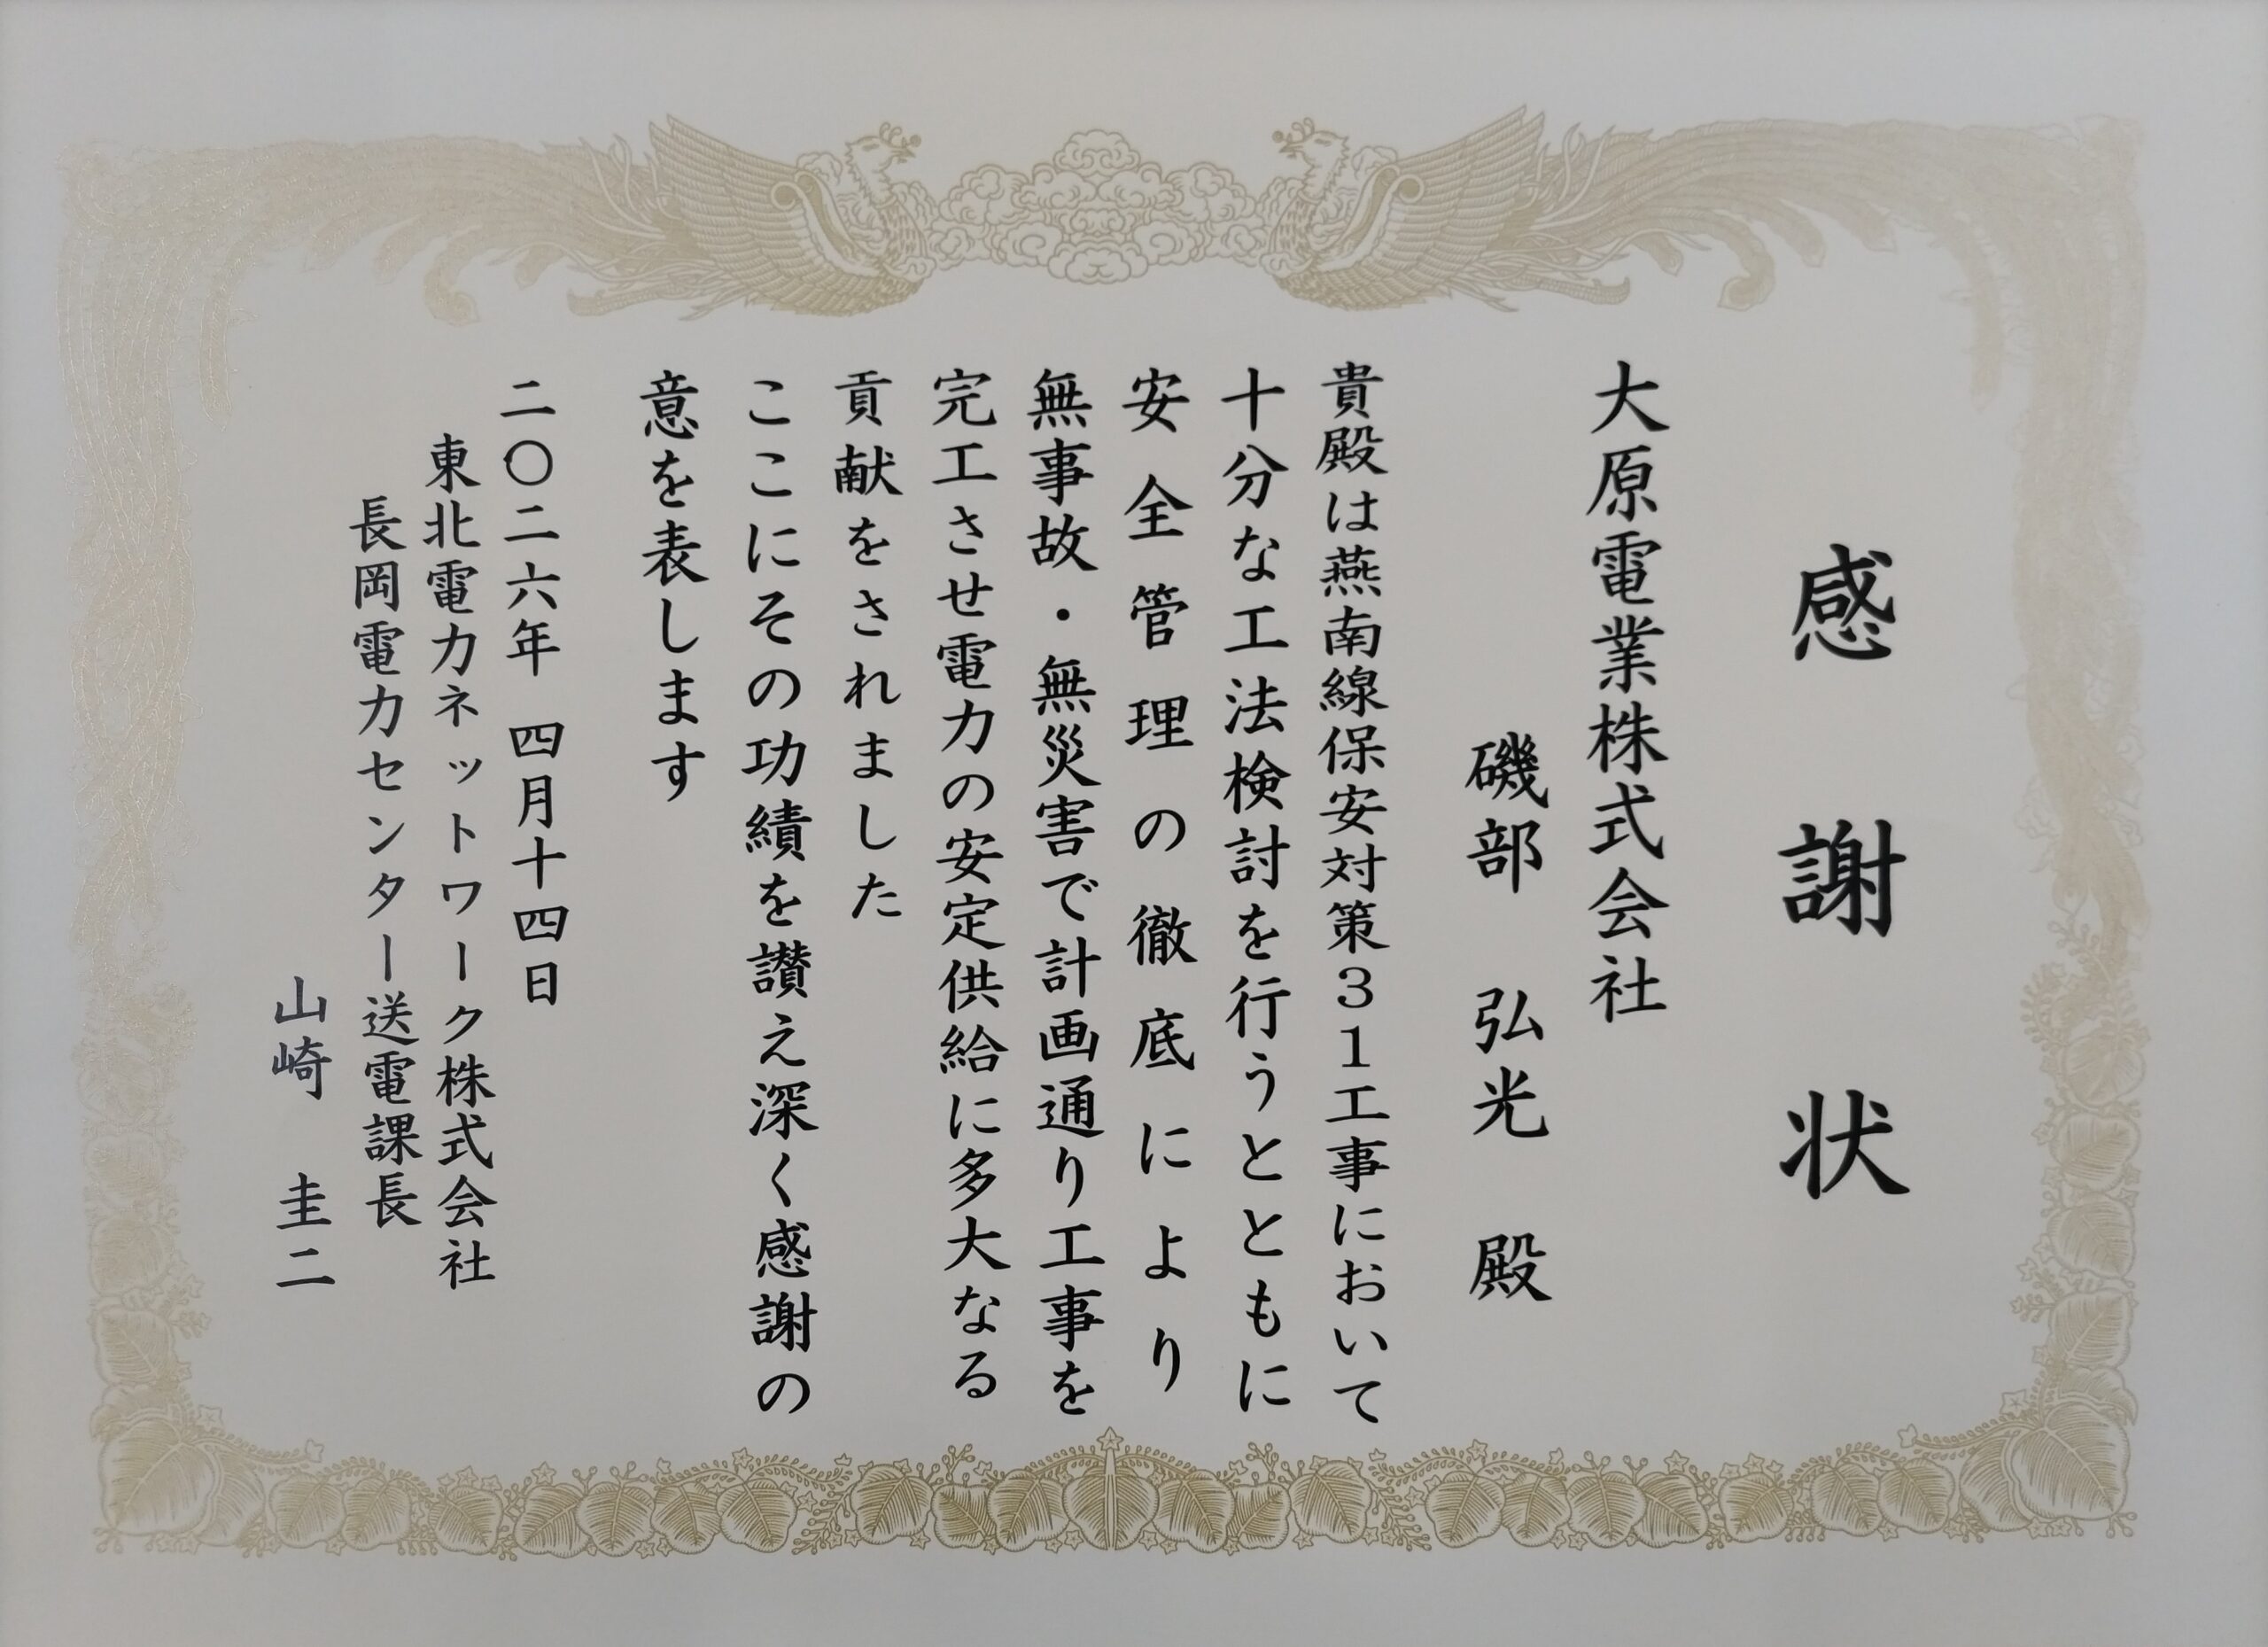 感謝状
大原電業株式会社
磯部　弘光　殿
貴殿は燕南線保安対策３１工事において
十分な工法検討を行うとともに
安全管理の徹底により
無事故・無災害で計画通り工事を
完工させ電力の安定供給に多大なる
貢献をされました
ここにその功績を讃え深く感謝の
意を表します
二〇二六年　四月十四日
東北電力ネットワーク株式会社
長岡電力センター送電課長
山崎　圭二